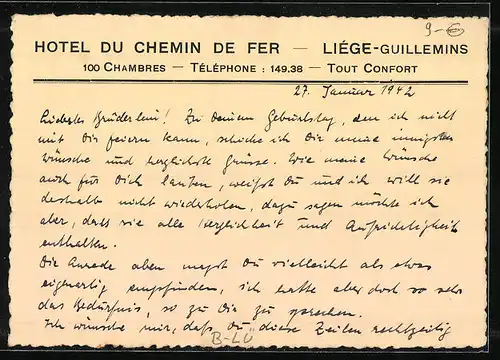 9-€
HOTEL DU CHEMIN DE FER — LIÉGE-GUILLEMINS
100 CHAMBRES — TÉLÉPHONE : 149.38 — TOUT CONFORT
27. Januar 1942
Liebstes Brüderlein! Zu Deinem Geburtstag, den ich nicht
mit Dir feiern kann, schicke ich Dir meine innigsten
Wünsche und herzlichste Grüsse. Wie meine Wünsche
auch für Dich lauten, weißt Du und ich will sie
deshalb nicht wiederholen, dazu sagen möchte ich
aber, daß sie alle Herzlichkeit und Aufrichtigkeit
enthalten.
Die Anrede oben magst Du vielleicht als etwas
eigenartig empfinden, ich hatte aber doch so sehr
das Bedürfnis, so zu Dir zu sprechen.
Ich wünsche mir, daß Du diese Zeilen rechtzeitig
B-LÜ